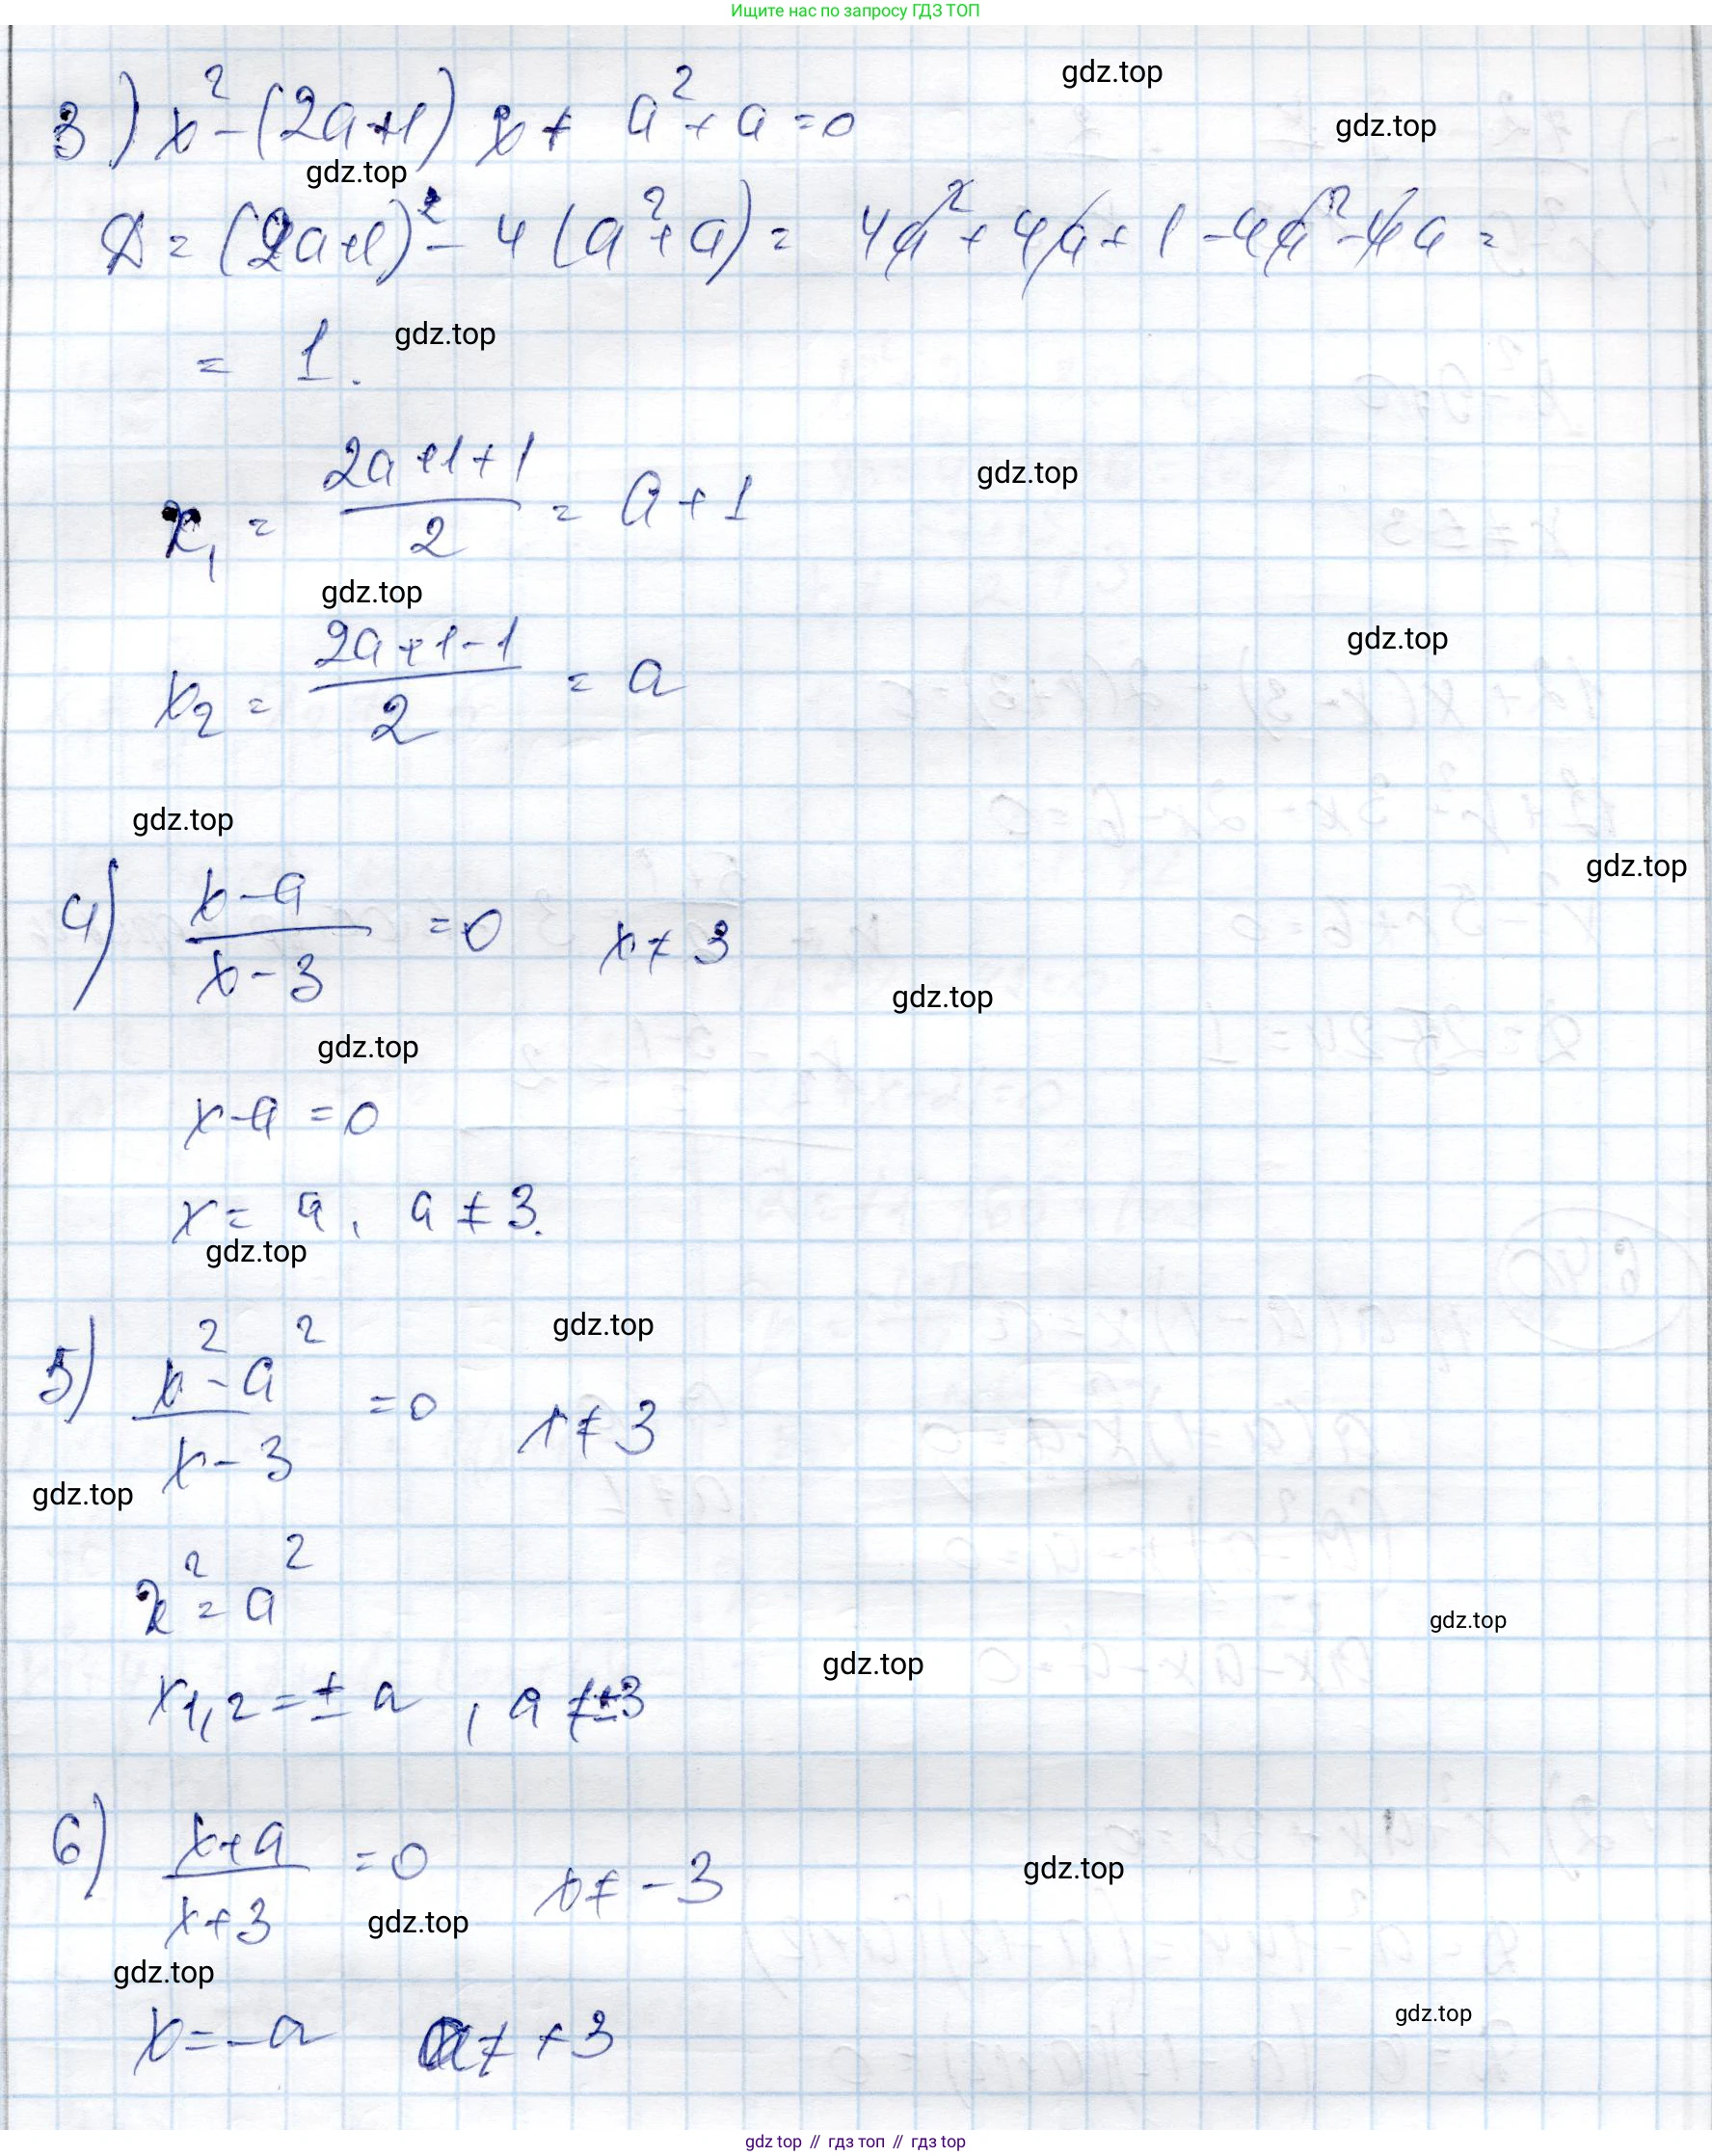 Ищите нас по запросу ГДЗ ТОП
gdz.top
gdz.top
3) x² - (2a+1) x + a² + a = 0
gdz.top
D = (2a+1)² - 4 (a² + a) = 4a² + 4a + 1 - 4a² - 4a =
= 1.
gdz.top
x₁ = (2a+1+1)/2 = a + 1
gdz.top
gdz.top
x₂ = (2a+1-1)/2 = a
gdz.top
gdz.top
gdz.top
4) (x-a)/(x-3) = 0 x ≠ 3
gdz.top
gdz.top
x-a = 0
x = a, a ≠ 3.
gdz.top
gdz.top
5) (x²-a²)/(x-3) = 0 x ≠ 3
gdz.top
x² = a²
gdz.top
gdz.top
x1,2 = ± a , a ≠ ±3
6) (x+a)/(x+3) = 0 x ≠ -3
gdz.top
gdz.top
gdz.top
gdz.top
x = -a a ≠ +3
gdz top // гдз топ // гдз top